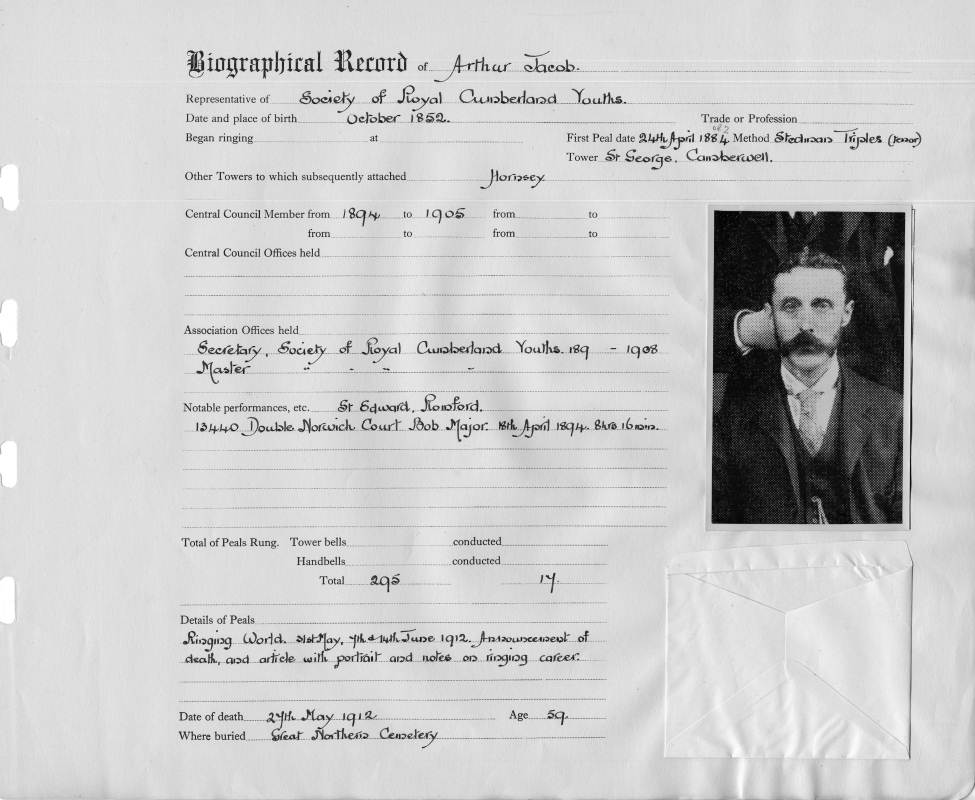 Biographical Record of Arthur Jacob.
Representative of Society of Royal Cumberland Youths.
Date and place of birth October 1852. Trade or Profession
Began ringing at First Peal date 24th April 1884 Method Stedman Triples (tenor)
Tower St George, Camberwell.
Other Towers to which subsequently attached Hornsey
Central Council Member from 1894 to 1905 from to
from to from to
Central Council Offices held
Association Offices held
Secretary, Society of Royal Cumberland Youths. 189 - 1908
Master " " " "
Notable performances, etc. St Edward, Romford.
13440 Double Norwich Court Bob Major. 18th April 1894. 8hrs 16min.
Total of Peals Rung. Tower bells conducted
Handbells conducted
Total 295 17.
Details of Peals
Ringing World. 31st May, 7th & 14th June 1912. Announcement of
death, and article with portrait and notes on ringing career.
Date of death 27th May 1912 Age 59.
Where buried Great Northern Cemetery